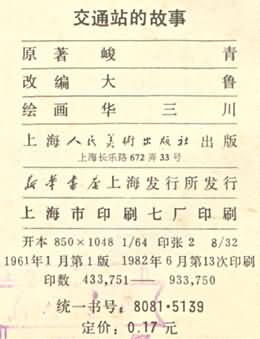 交通站的故事
原著 峻青
改编 大鲁
绘画 华三川
上海人民美術出版社出版
上海长乐路672弄33号
新华書店上海发行所发行
上海市印刷七厂印刷
开本 850×1048 1/64 印张 2 8/32
1961年1月第1版 1982年6月第13次印刷
印数 433,751—933,750
统一书号：8081·5139
定价：0.17元